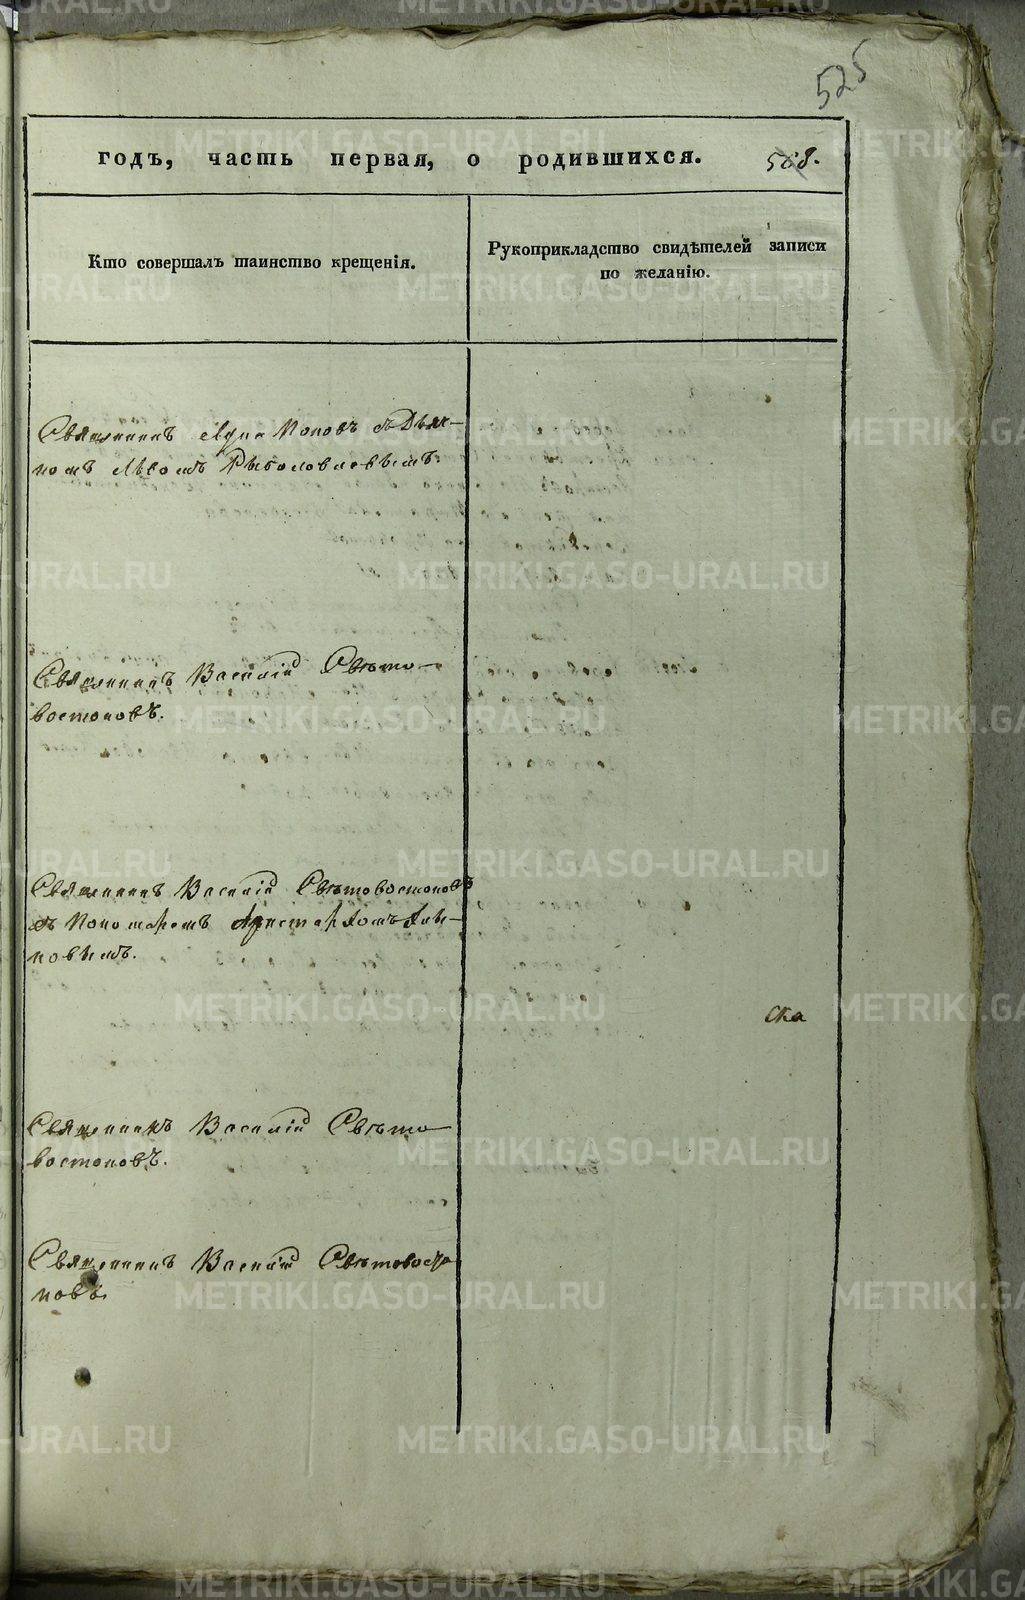 525
годъ, часть первая, о родившихся.
Кто совершалъ таинство крещенія.
Рукоприкладство свидѣтелей записи
по желанію.
Священникъ Поповъ съ Дьяч-
комъ
Священникъ Василій Свѣто-
востоковъ.
Священникъ Василій Свѣтовостоковъ
съ Пономаремъ Аристархомъ
Священникъ Василій Свѣто-
востоковъ.
Священникъ Василій Свѣтовосто-
ковъ.
METRIKI.GASO-URAL.RU